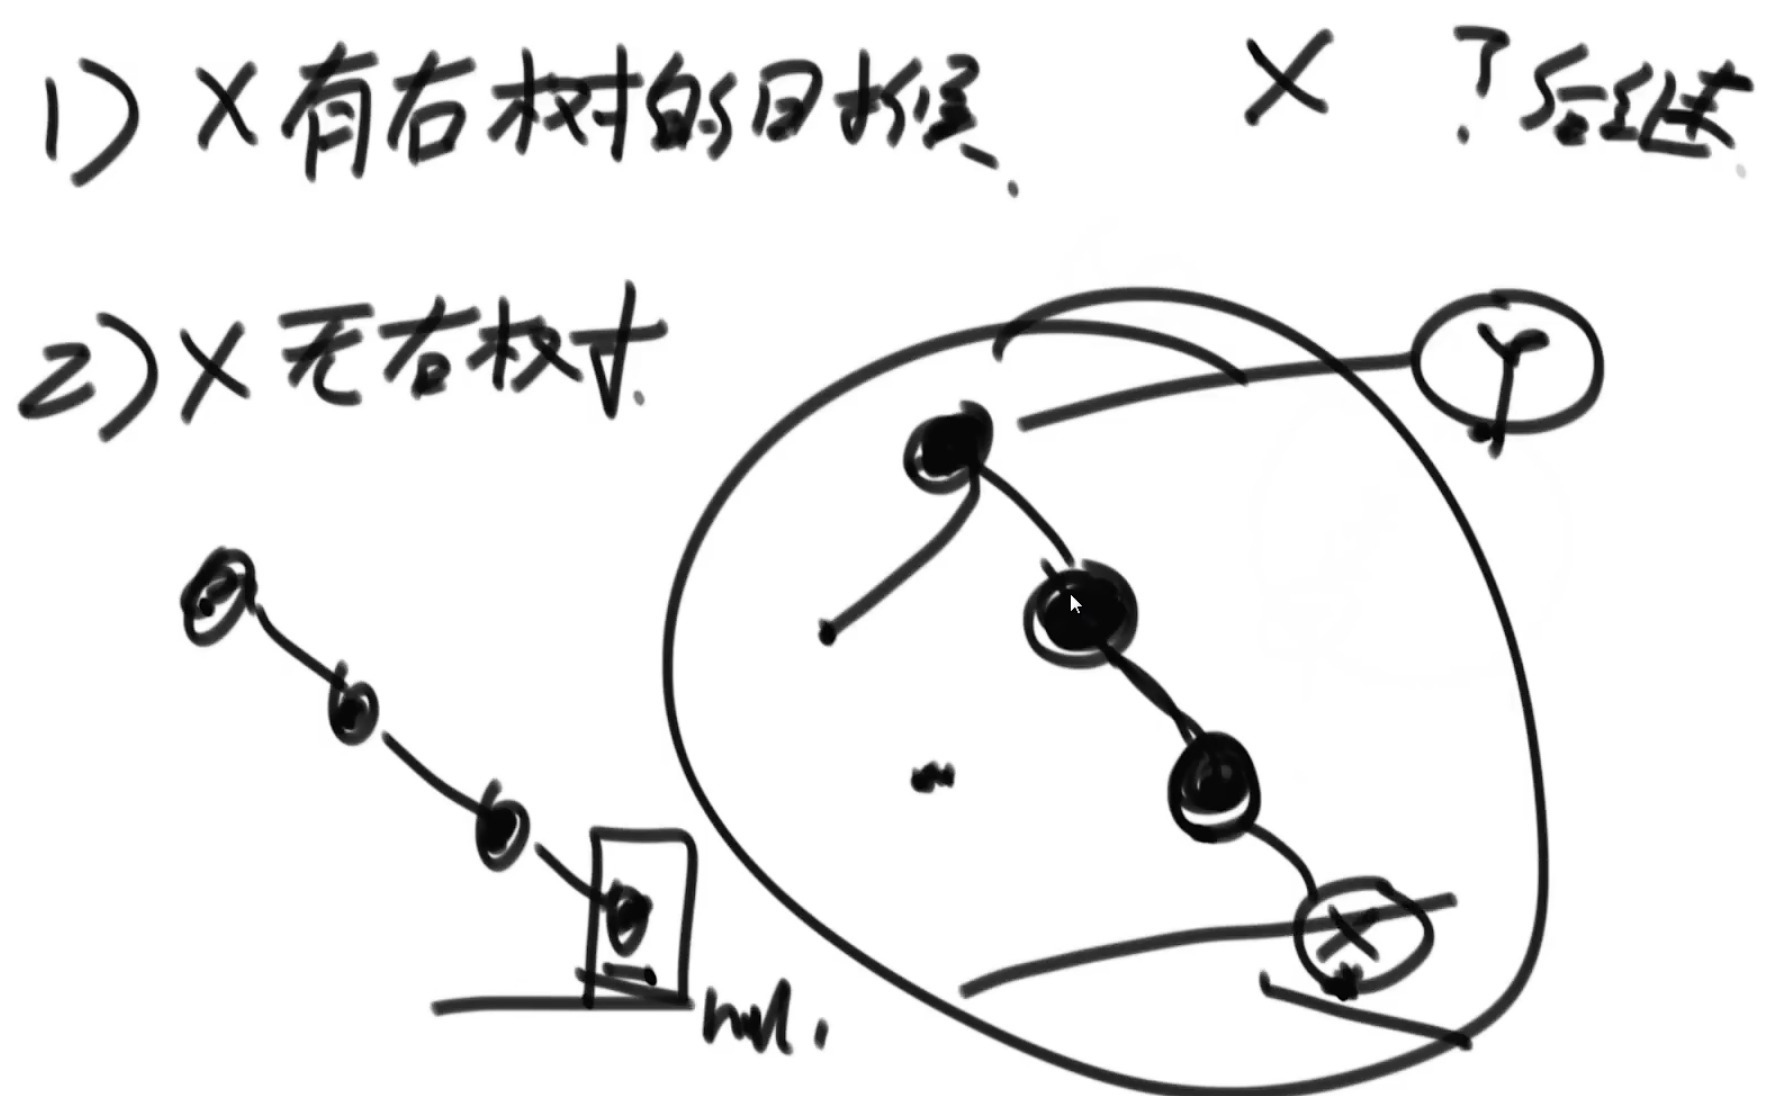 1) X有右树的时候.
X ?后继.
2) X无右树.
Y
X
null.